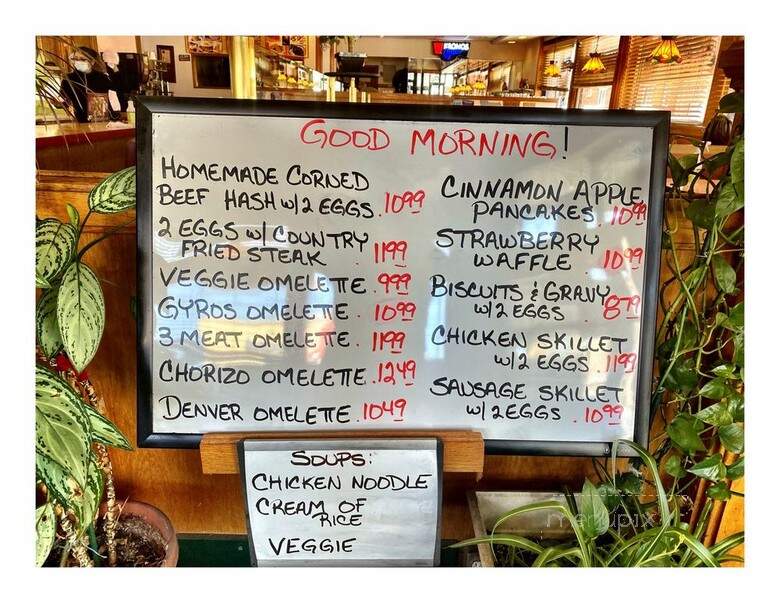 GOOD MORNING!
HOMEMADE CORNED
BEEF HASH w/2 EGGS. 10.99
2 EGGS w/ COUNTRY
FRIED STEAK 11.99
VEGGIE OMELETTE. 9.99
GYROS OMELETTE. 10.99
3 MEAT OMELETTE. 11.99
CHORIZO OMELETTE. 12.49
DENVER OMELETTE. 10.49
CINNAMON APPLE
PANCAKES. 10.99
STRAWBERRY
WAFFLE. 10.99
BISCUITS & GRAVY
w/2 EGGS. 8.79
CHICKEN SKILLET
w/2 EGGS. 11.99
SAUSAGE SKILLET
w/2 EGGS. 10.99
SOUPS:
CHICKEN NOODLE
CREAM OF
RICE
VEGGIE
menupix